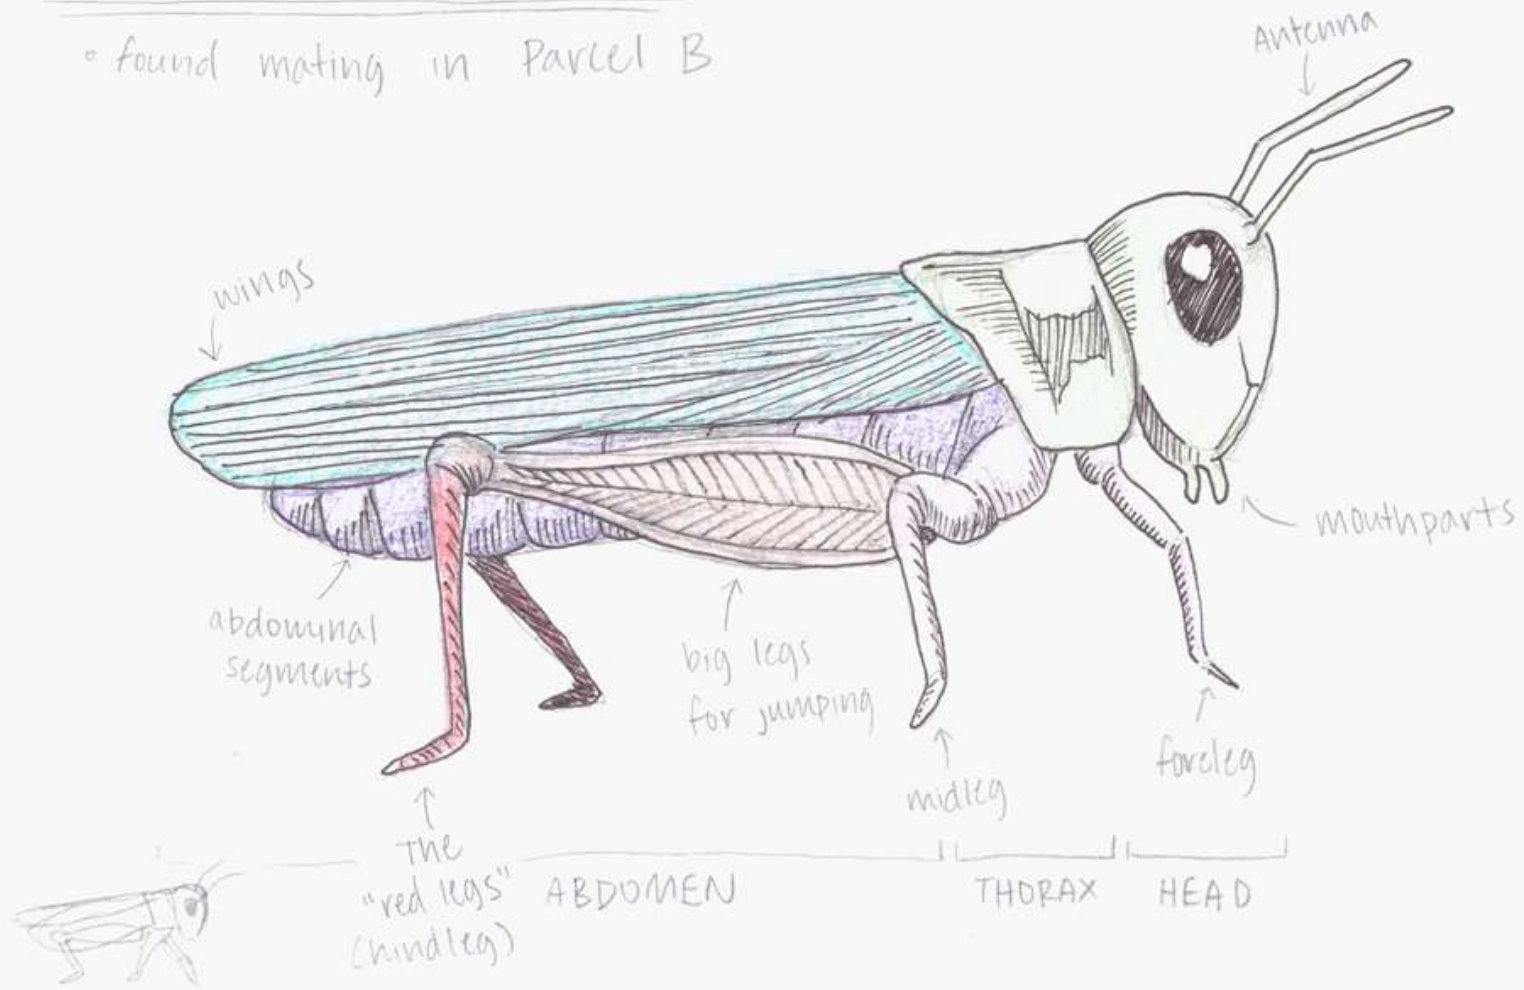 • found mating in Parcel B
Antenna
wings
mouthparts
abdominal
segments
big legs
for jumping
midleg
foreleg
The
"red legs"
(hindleg)
ABDOMEN
THORAX
HEAD